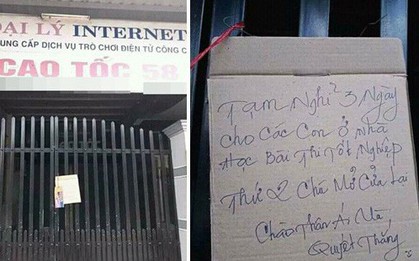 ĐẠI LÝ INTERNET
CUNG CẤP DỊCH VỤ TRÒ CHƠI ĐIỆN TỬ CÔNG C
CAO TỐC 58
Tạm Nghỉ 3 Ngày
cho Các Con ở nhà
Học Bài Thi Tốt Nghiệp
Thứ 2 Chú Mở Cửa Lại
Chào Thân Ái Và
Quyết Thắng